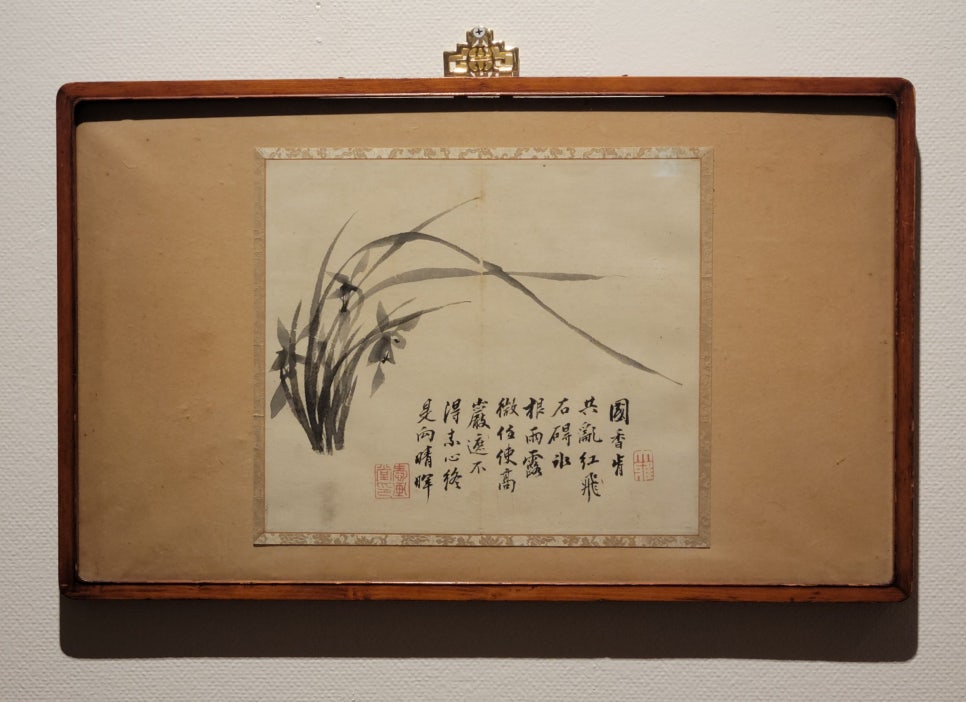 國香肯
共亂紅飛
石碍氷
根雨露
微任使高
巖遮不
得素心終
是向晴暉